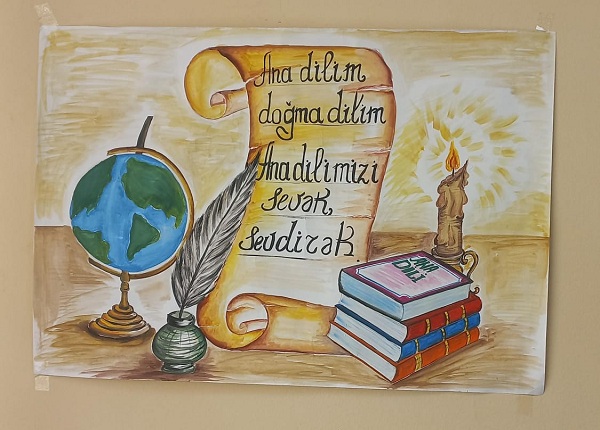 Ana dilim
doğma dilim
Ana dilimizi
sevək,
sevdirək.
ANA
DİLİ